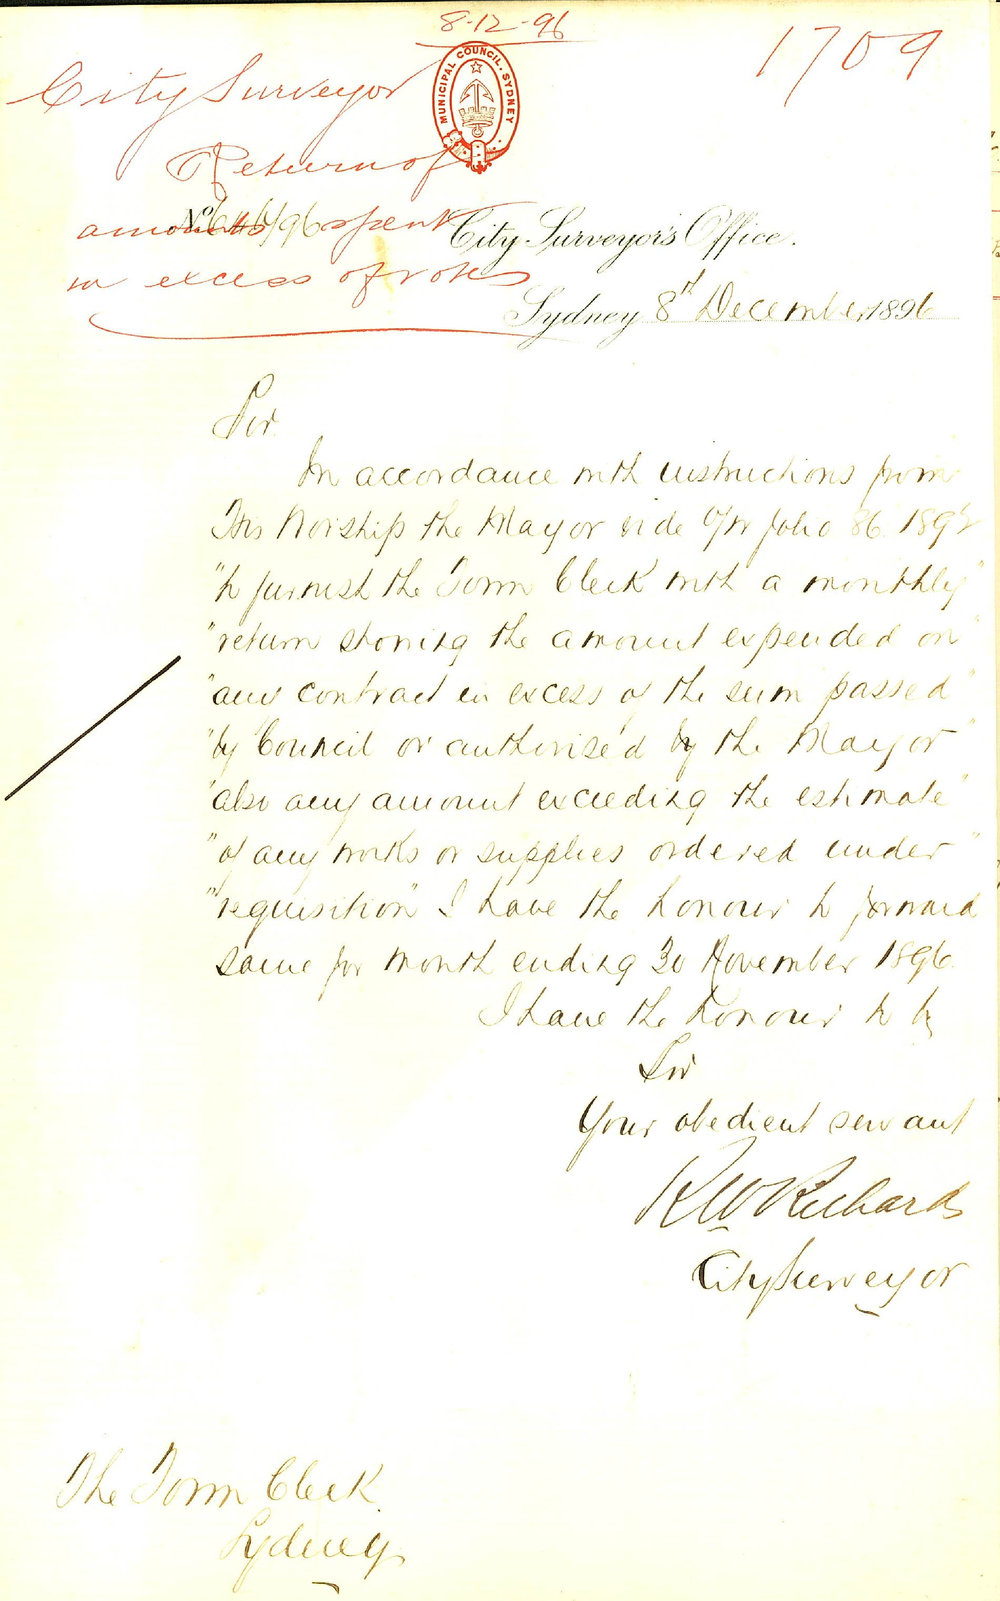 8-12-96
1709
City Surveyor
MUNICIPAL COUNCIL, SYDNEY
Return of
amounts spent
in excess of votes
No. /96
City Surveyor's Office.
Sydney 8th December 1896
Sir
In accordance with instructions from
His Worship the Mayor vide folio 86
"to furnish the Town Clerk with a monthly"
"return showing the amount expended on"
"any contract in excess of the sum passed"
"by Council or authorised by the Mayor"
"also any amount exceeding the estimate"
"of any works or supplies ordered under"
"requisition" I have the honour to forward
same for month ending 30 November 1896.
I have the honour to be
Sir
Your obedient servant
R W Richards
City Surveyor
The Town Clerk
Sydney